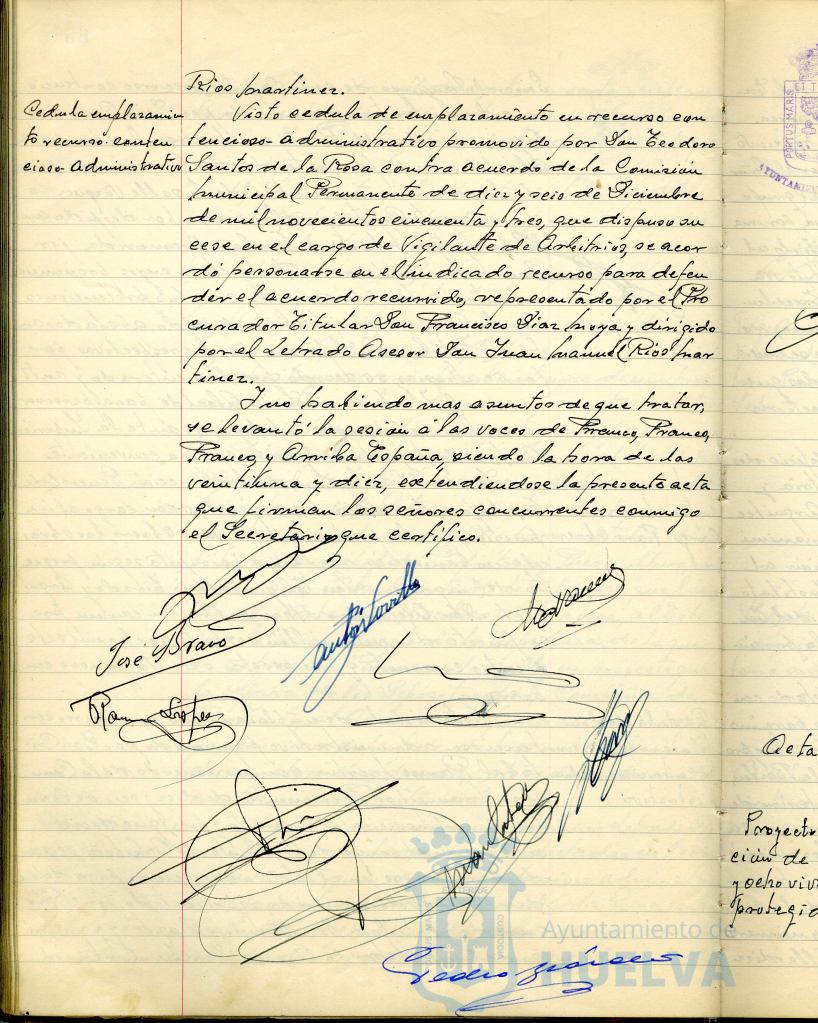 Rios Martinez.
Cedula emplazamien
to recurso conten
cioso-administrativo
Visto cedula de emplazamiento en recurso con
tencioso-administrativo promovido por Don Teodoro
Santos de la Rosa contra acuerdo de la Comisión
Municipal Permanente de diez y seis de Diciembre
de mil novecientos cincuenta y tres, que dispuso su
cese en el cargo de Vigilante de Arbitrios, se acor
dó personarse en el indicado recurso para defen
der el acuerdo recurrido, representado por el Pro
curador Titular Don Francisco Diaz Moya y dirigido
por el Letrado Asesor Don Juan Manuel Rios Mar
tinez.
Y no habiendo mas asuntos de que tratar,
se levantó la sesión a las voces de Franco, Franco,
Franco, y Arriba España, siendo la hora de las
veintiuna y diez, extendiendose la presente acta
que firman los señores concurrentes conmigo
el Secretario que certifico.
José Bravo
Ayuntamiento de
HUELVA
PORTUS MARIS
Acta
Proyecto
ción de
y ocho vivi
protegid